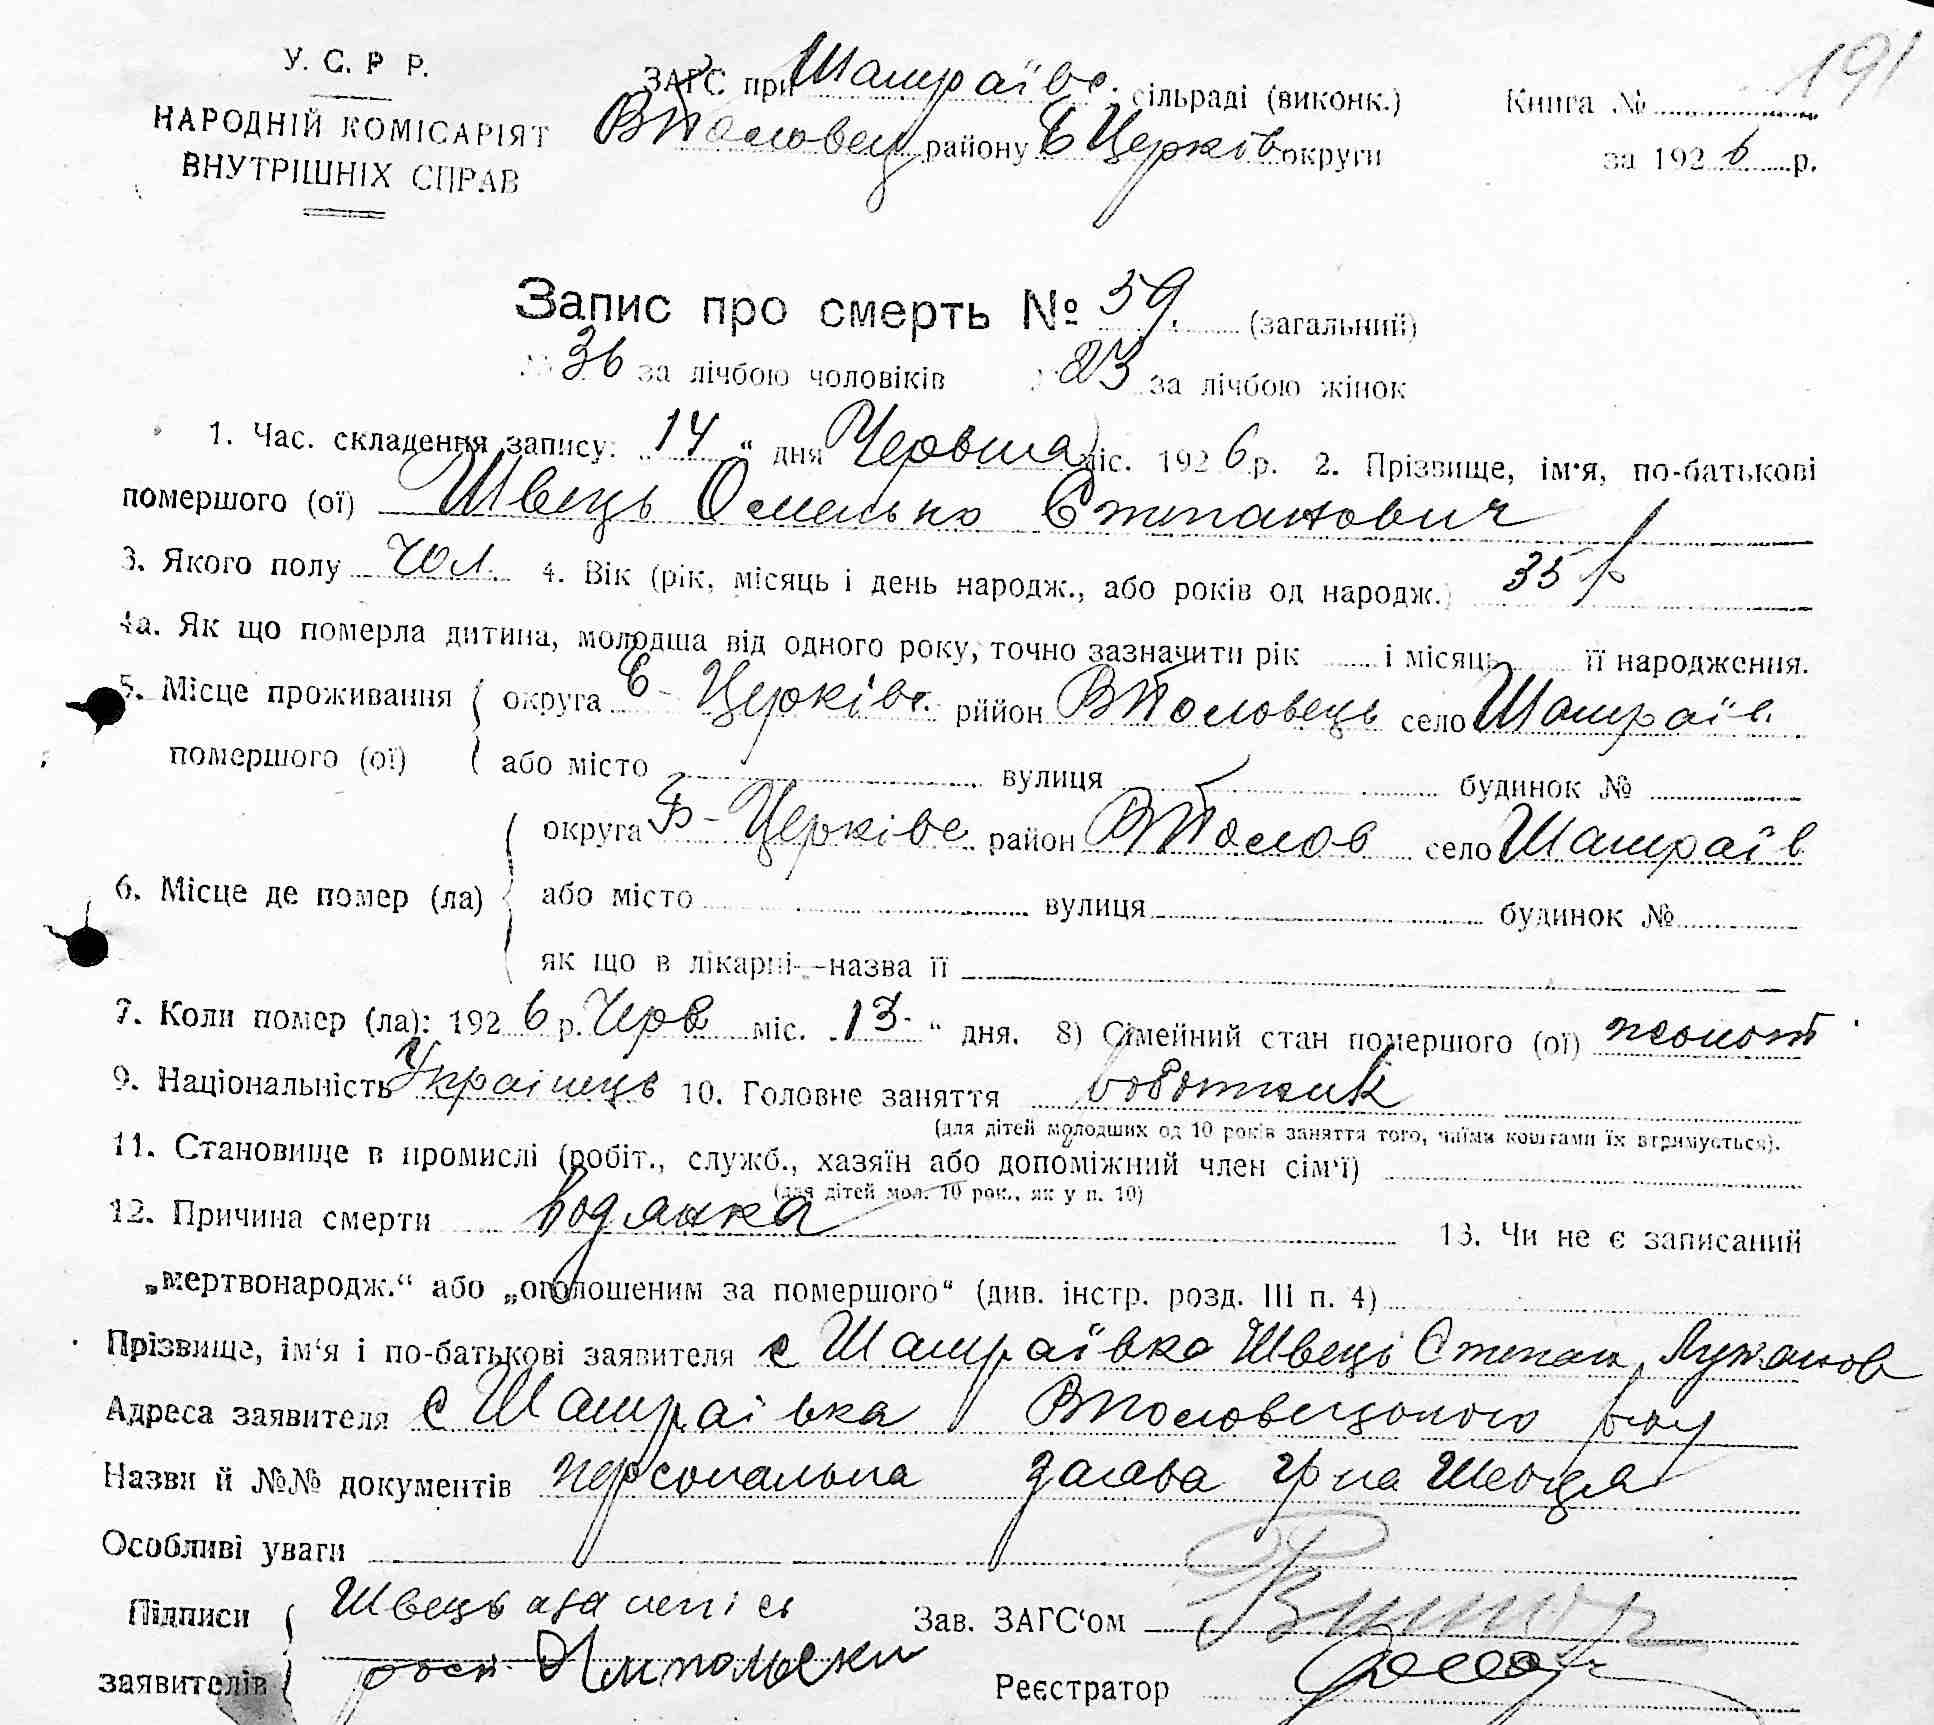 191
У. С. Р Р.
НАРОДНІЙ КОМІСАРІЯТ
ВНУТРІШНІХ СПРАВ
ЗАГС при Шамраївс. сільраді (виконк.)
ВПоловец району Б Церків округи
Книга №
за 1926 р.
Запис про смерть № 59. (загальний)
№ 36 за лічбою чоловіків № 23 за лічбою жінок
1. Час. складення запису: 14 “ дня Червня міс. 1926 р. 2. Прізвище, ім'я, по-батькові
помершого (ої) Швець Омелько Степанович
3. Якого полу Чол. 4. Вік (рік, місяць і день народж., або років од народж.) 35 р
4а. Як що померла дитина, молодша від одного року, точно зазначити рік і місяць її народження.
5. Місце проживання помершого (ої) округа Б-Церківс. рййон ВПоловець село Шамраїв.
або місто вулиця будинок №
6. Місце де помер (ла) округа Б-Церківс район ВПолов село Шамраїв
або місто вулиця будинок №
як що в лікарні—назва її
7. Коли помер (ла): 1926 р. Черв міс. 13 “ дня. 8) Сімейний стан помершого (ої) жонот
9. Національність Українець 10. Головне заняття робітник
(для дітей молодших од 10 років заняття того, чиїми коштами їх втримується).
11. Становище в промислі (робіт., служб., хазяїн або допоміжний член сім'ї)
(для дітей мол. 10 рок., як у п. 10)
12. Причина смерти водянка 13. Чи не є записаний
„мертвонародж.“ або „оголошеним за помершого“ (див. інстр. розд. III п. 4)
Прізвище, ім'я і по-батькові заявителя с Шамраївка Швець Степан
Адреса заявителя с Шамраівка ВПоловецького р-ну
Назви й №№ документів персональна заява гр на Шевця
Особливі уваги
Підписи заявителів Швець а за непісь
Зав. ЗАГС'ом
рост.
Реєстратор